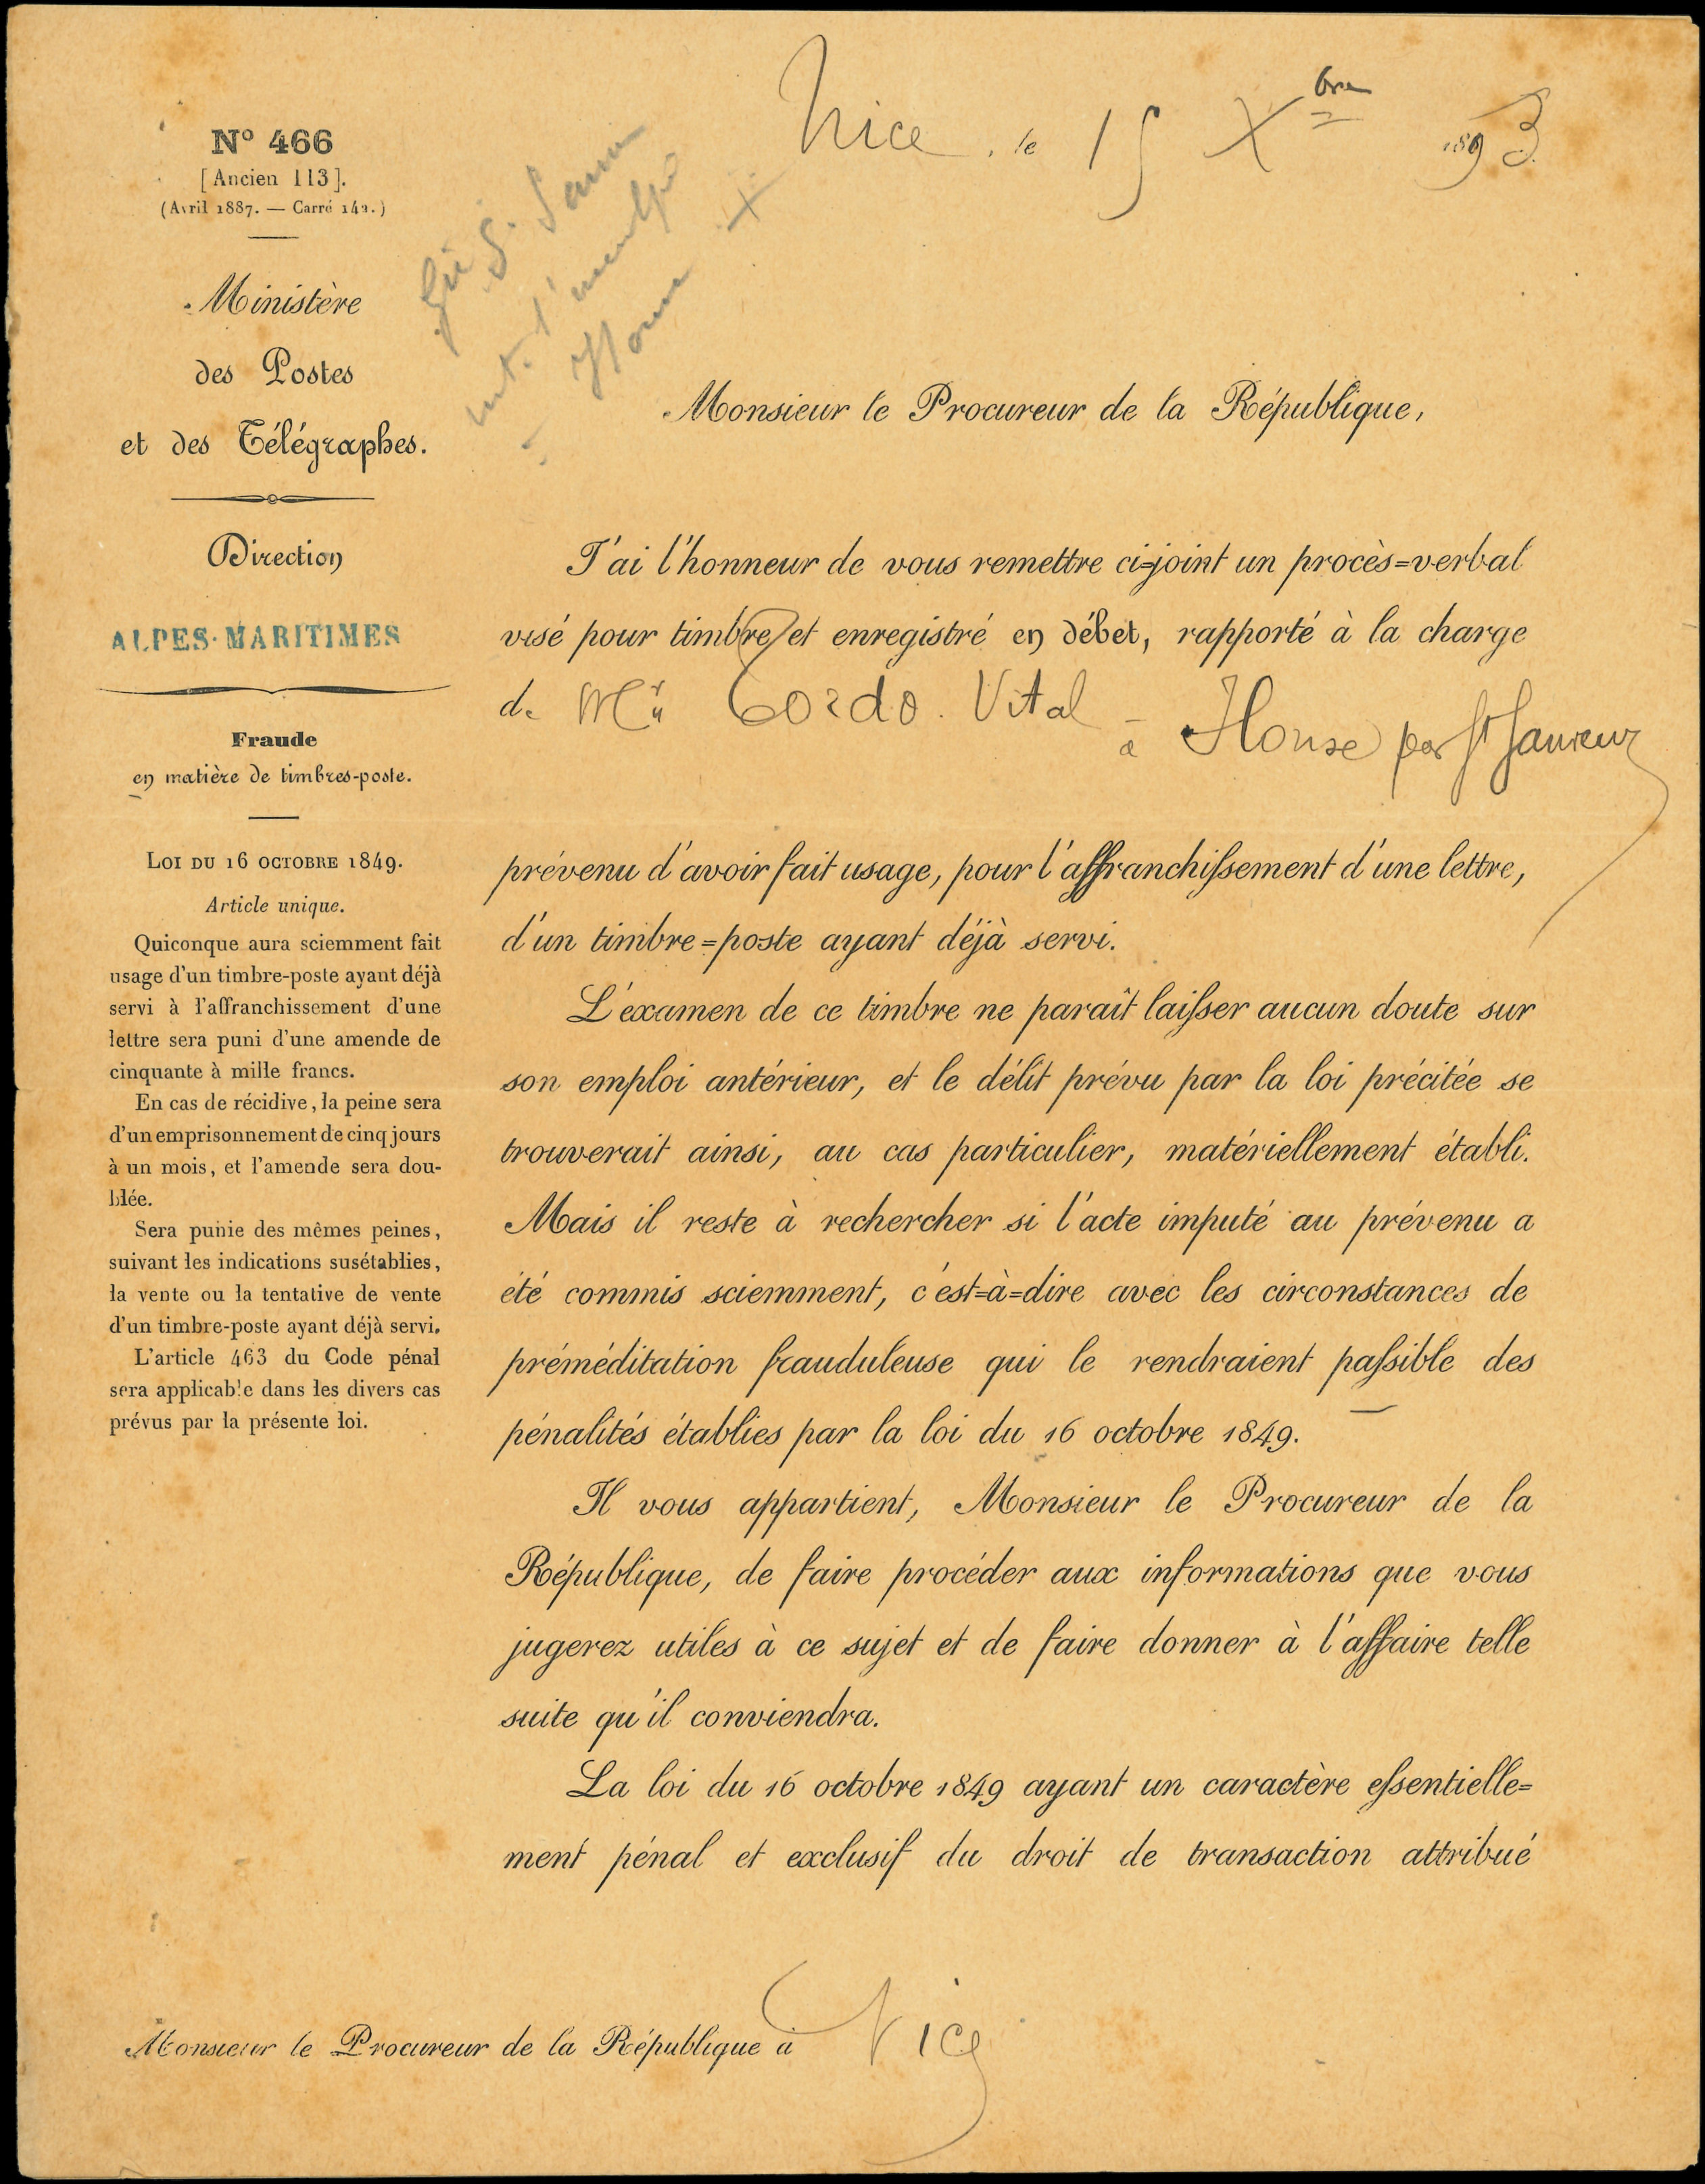 N° 466
[Ancien 113].
(Avril 1887. — Carré 142.)
Ministère
des Postes
et des Télégraphes.
Direction
ALPES-MARITIMES
Fraude
en matière de timbres-poste.
LOI DU 16 OCTOBRE 1849.
Article unique.
Quiconque aura sciemment fait
usage d'un timbre-poste ayant déjà
servi à l'affranchissement d'une
lettre sera puni d'une amende de
cinquante à mille francs.
En cas de récidive, la peine sera
d'un emprisonnement de cinq jours
à un mois, et l'amende sera dou-
blée.
Sera punie des mêmes peines,
suivant les indications susétablies,
la vente ou la tentative de vente
d'un timbre-poste ayant déjà servi.
L'article 463 du Code pénal
sera applicable dans les divers cas
prévus par la présente loi.
Nice, le 15 Xbre 1893
Monsieur le Procureur de la République,
J'ai l'honneur de vous remettre ci-joint un procès=verbal
visé pour timbre et enregistré en débet, rapporté à la charge
de Mr Cordo Vital à par St Sauveur
prévenu d'avoir fait usage, pour l'affranchissement d'une lettre,
d'un timbre=poste ayant déjà servi.
L'examen de ce timbre ne paraît laisser aucun doute sur
son emploi antérieur, et le délit prévu par la loi précitée se
trouverait ainsi, au cas particulier, matériellement établi.
Mais il reste à rechercher si l'acte imputé au prévenu a
été commis sciemment, c'est=à=dire avec les circonstances de
préméditation frauduleuse qui le rendraient passible des
pénalités établies par la loi du 16 octobre 1849.
Il vous appartient, Monsieur le Procureur de la
République, de faire procéder aux informations que vous
jugerez utiles à ce sujet et de faire donner à l'affaire telle
suite qu'il conviendra.
La loi du 16 octobre 1849 ayant un caractère essentielle=
ment pénal et exclusif du droit de transaction attribué
Monsieur le Procureur de la République à Nice